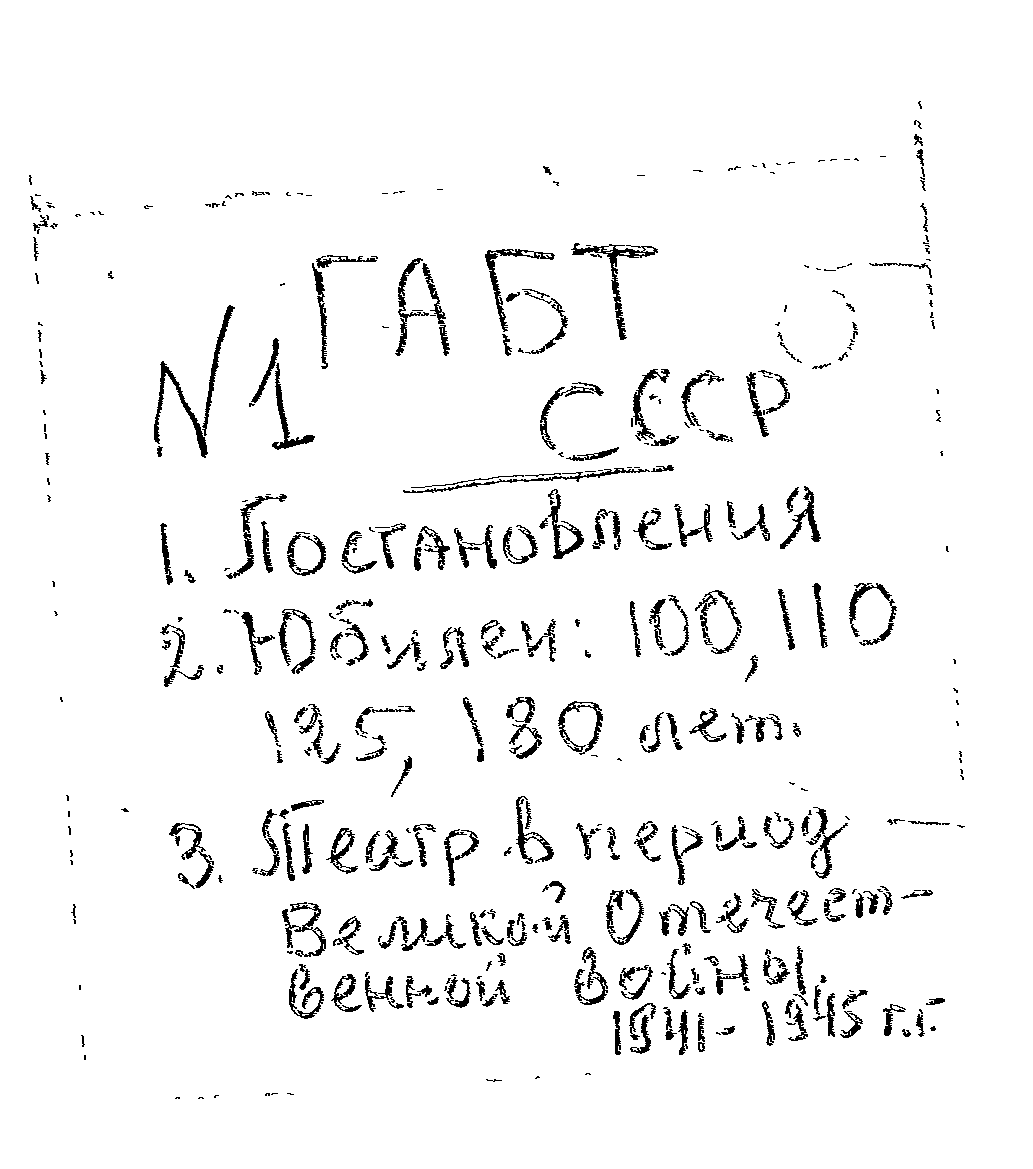 ГАБТ
№1 СССР
1. Постановления
2. Юбилеи: 100, 110
125, 180 лет.
3. Театр в период
Великой Отечест-
венной войны.
1941-1945 г.г.